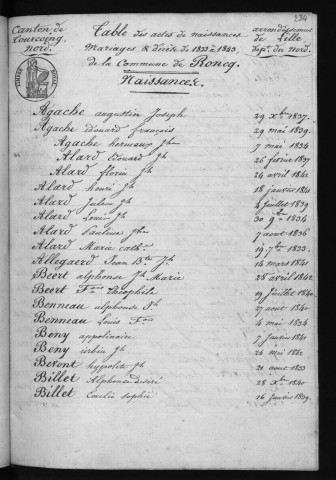 234
Canton de
Tourcoing
nord.
Table des actes de naissances
Mariages & décès de 1833 à 1843,
de la Commune de Roncq.
arrondissemt
de Lille
dépt. du Nord.
Naissances.
Agache augustin Joseph 29 Xbre 1837.
Agache édouard françois 29 mai 1839.
Agache hermaux Jh 7 mai 1834
Alard édouard Jh 26 fevrier 1837
Alard florin Jh 24 avril 1842
Alard henri Jh 18 janvier 1841
Alard Julien Jh 4 juillet 1839
Alard Louis Jh 30 9bre 1834
Alard Pauline Jh 7 aout 1836
Alard Marie cath. 19 7bre 1833.
Allegaerd Jean Bte Jh 14 mars 1841
Beert alphonse Jh Marie 25 avril 1842
Beert Fois théophile 19 Juillet 1840
Bonneau alphonse Jh 27 aout 1840
Bonneau Louis Fois 4 mai 1834
Beny appolinaire 7 janvier 1841
Beny urbin Jh 24 mai 1842
Beront hypolite Jh 21 aout 1833
Billet Alphonse désiré 28 Xbre 1840
Billet Emélie sophie 16 janvier 1839.